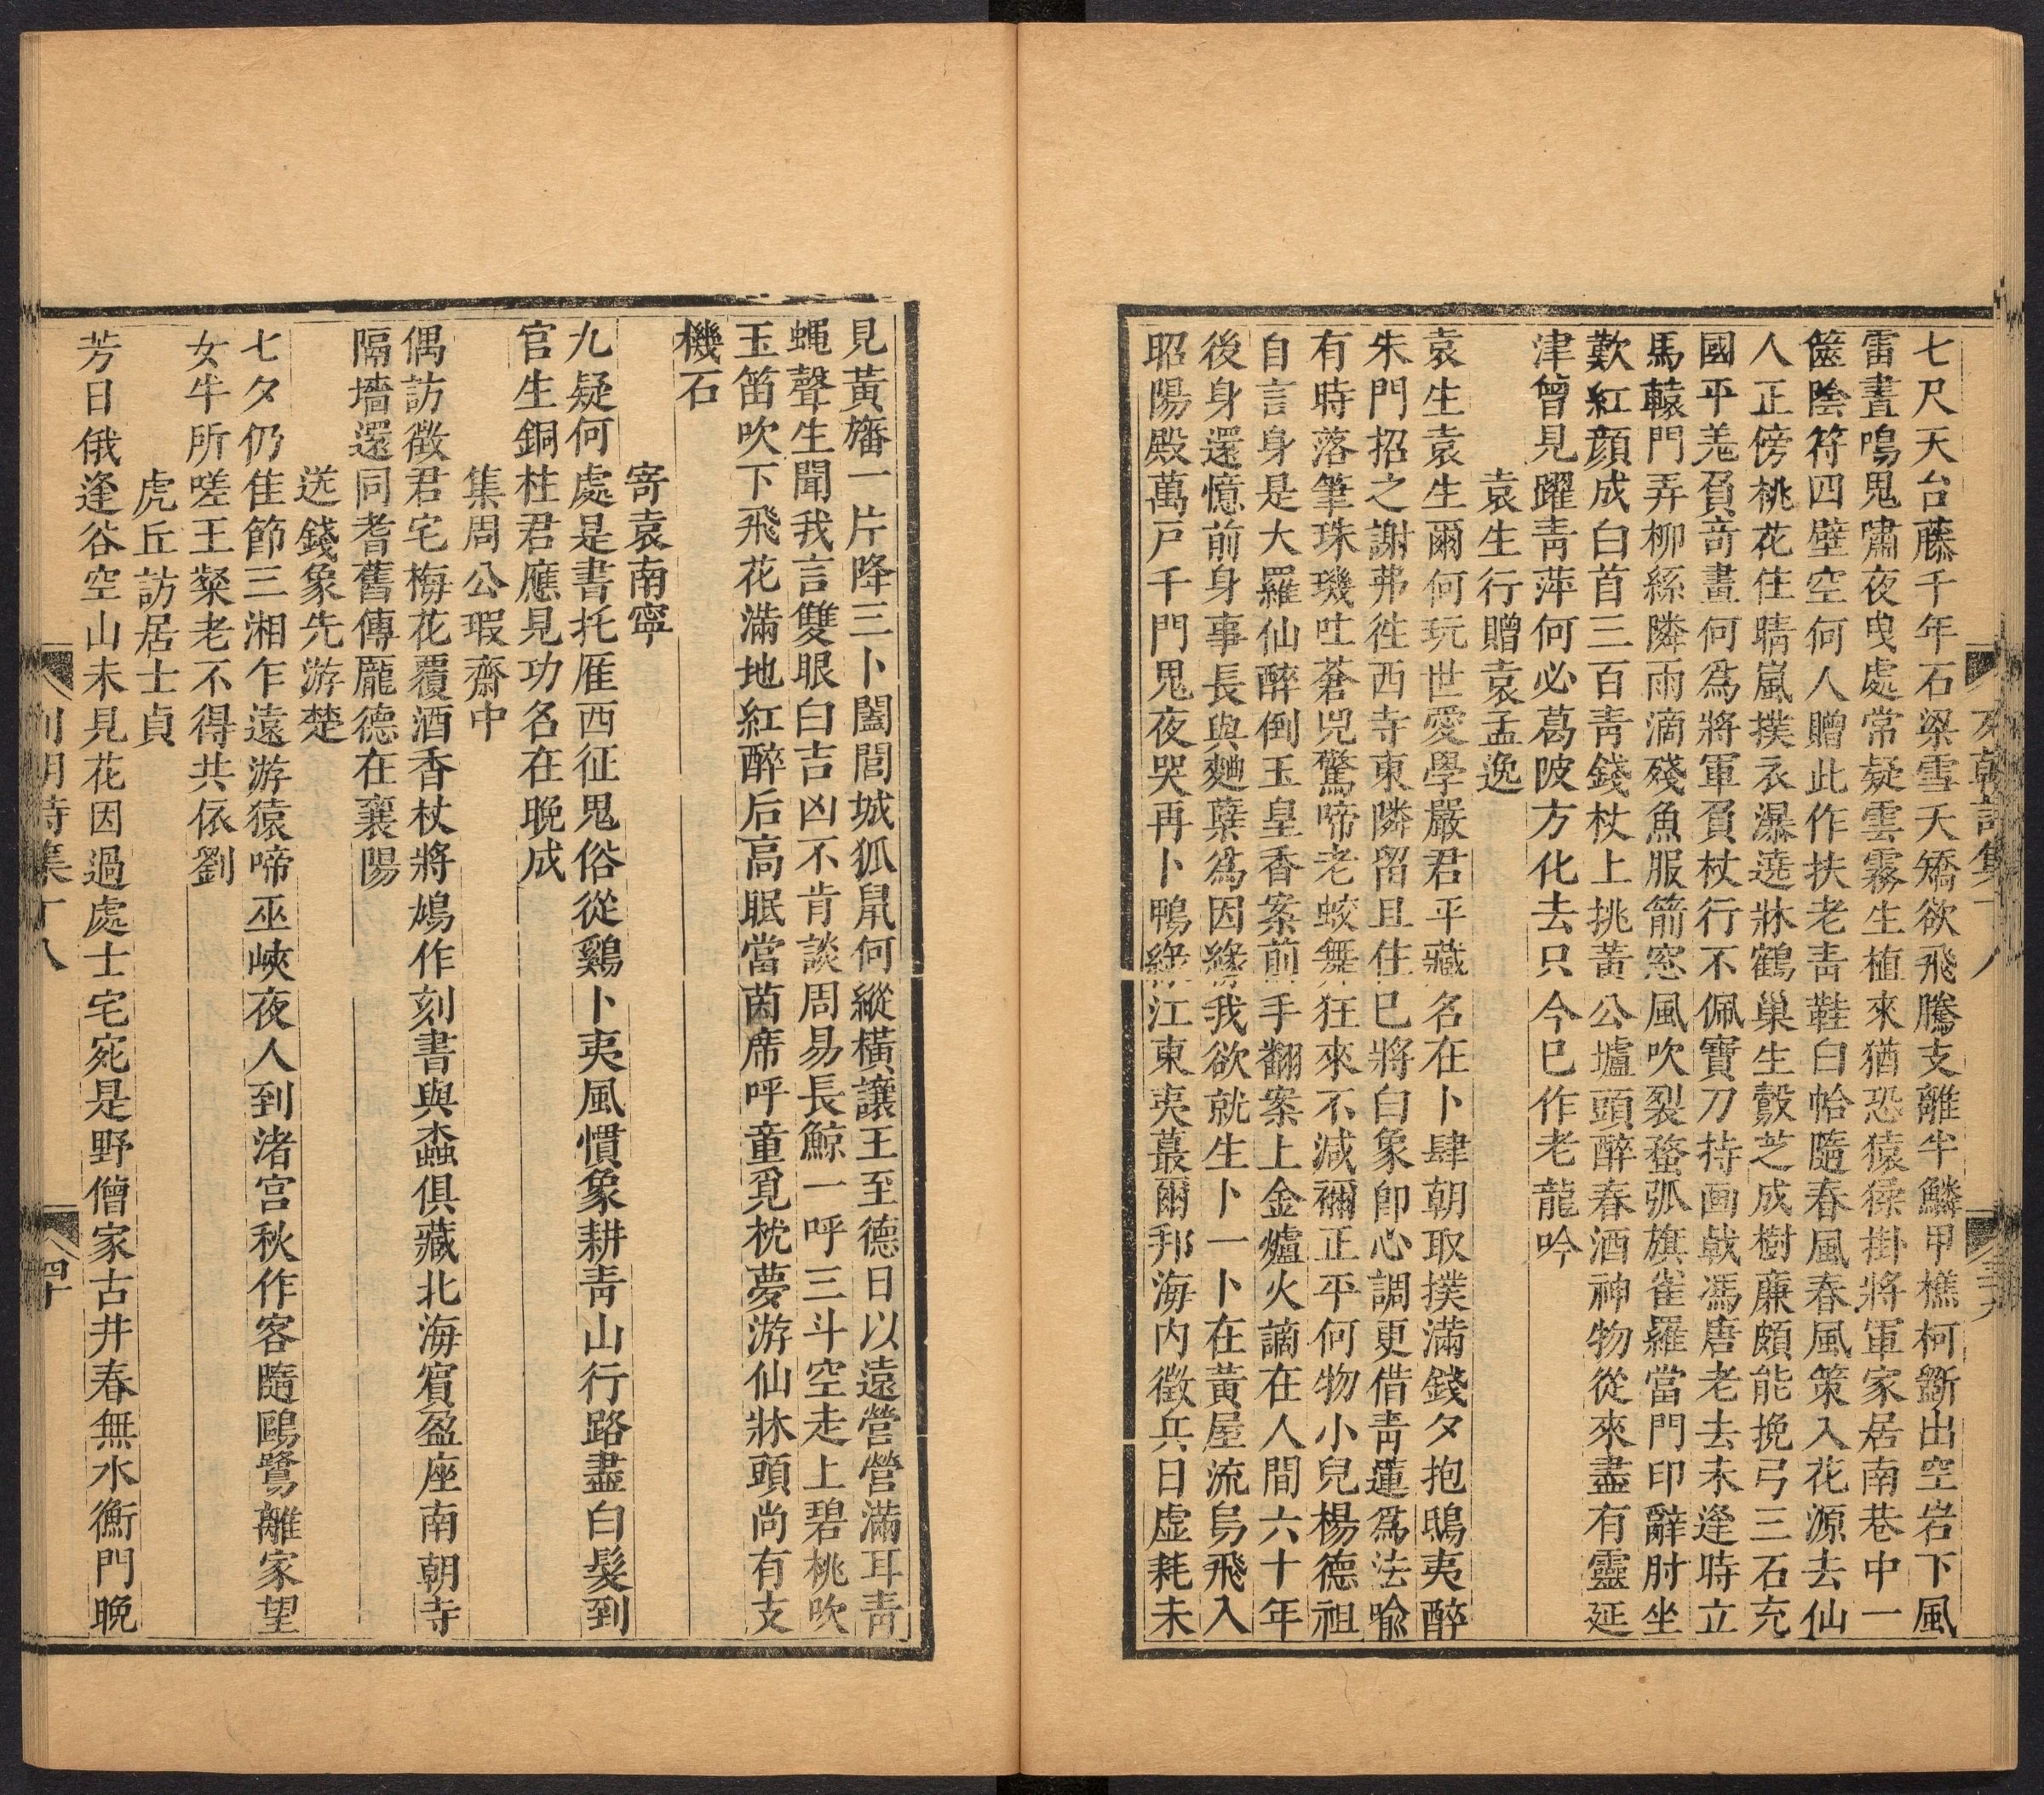 七尺天台藤千年石梁雪夭矯欲飛騰支離半鱗甲樵柯斵出空岩下風
雷晝鳴鬼嘯夜曳處常疑雲霧生植來猶恐猿猱掛將軍家居南巷中一
篋陰符四壁空何人贈此作扶老靑鞋白帢隨春風春風策入花源去仙
人正傍桃花住晴嵐撲衣瀑遶牀鶴巢生鷇芝成樹廉頗能挽弓三石充
國平羌負奇畫何爲將軍負杖行不佩寶刀持画戟馮唐老去未逢時立
馬轅門弄柳絲隣雨滴殘魚服箭窓風吹裂蝥弧旗雀羅當門印辭肘坐
歎紅顔成白首三百靑錢杖上挑黃公壚頭醉春酒神物從來盡有靈延
津曾見躍靑萍何必葛陂方化去只今巳作老龍吟
袁生行贈袁孟逸
袁生袁生爾何玩世愛學嚴君平藏名在卜肆朝取撲滿錢夕抱鴟夷醉
朱門招之謝弗徃西寺東隣留且住巳將白象卽心調更借靑蓮爲法喩
有時落筆珠璣吐蒼兕驚啼老蛟舞狂來不減禰正平何物小兒楊德祖
自言身是大羅仙醉倒玉皇香案前手翻案上金爐火謫在人間六十年
後身還憶前身事長與麯蘖爲因緣我欲就生卜一卜在黃屋流烏飛入
昭陽殿萬戸千門鬼夜哭再卜鴨綠江東夷蕞爾邦海内徵兵日虛耗未
見黃旛一片降三卜闔閭城狐鼠何縱橫讓王至德日以遠營營滿耳靑
蝇聲生聞我言雙眼白吉凶不肯談周易長鯨一呼三斗空走上碧桃吹
玉笛吹下飛花滿地紅醉后高眠當茵席呼童覓枕夢游仙牀頭尚有支
機石
寄袁南寧
九疑何處是書托雁西征鬼俗從鷄卜夷風慣象耕靑山行路盡白髮到
官生銅柱君應見功名在晚成
集周公瑕齋中
偶訪徵君宅梅花覆酒香杖將鳩作刻書與蟸俱藏北海賓盈座南朝寺
隔墻還同耆舊傳龎德在襄陽
送錢象先游楚
七夕仍隹節三湘乍遠游猿啼巫峽夜人到渚宮秋作客隨鷗鷺離家望
女牛所嗟王粲老不得共依劉
虎丘訪居士貞
芳日俄逢谷空山未見花因過處士宅宛是野僧家古井春無水衡門晚